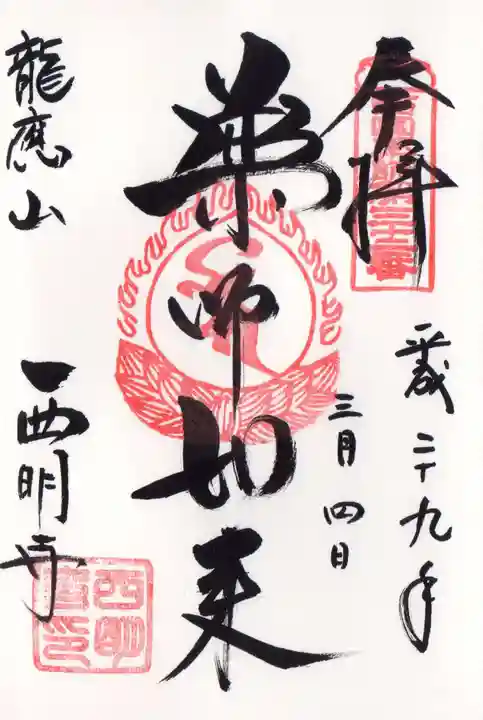 奉拝
平成二十九年
三月四日
薬師如来
龍應山 西明寺